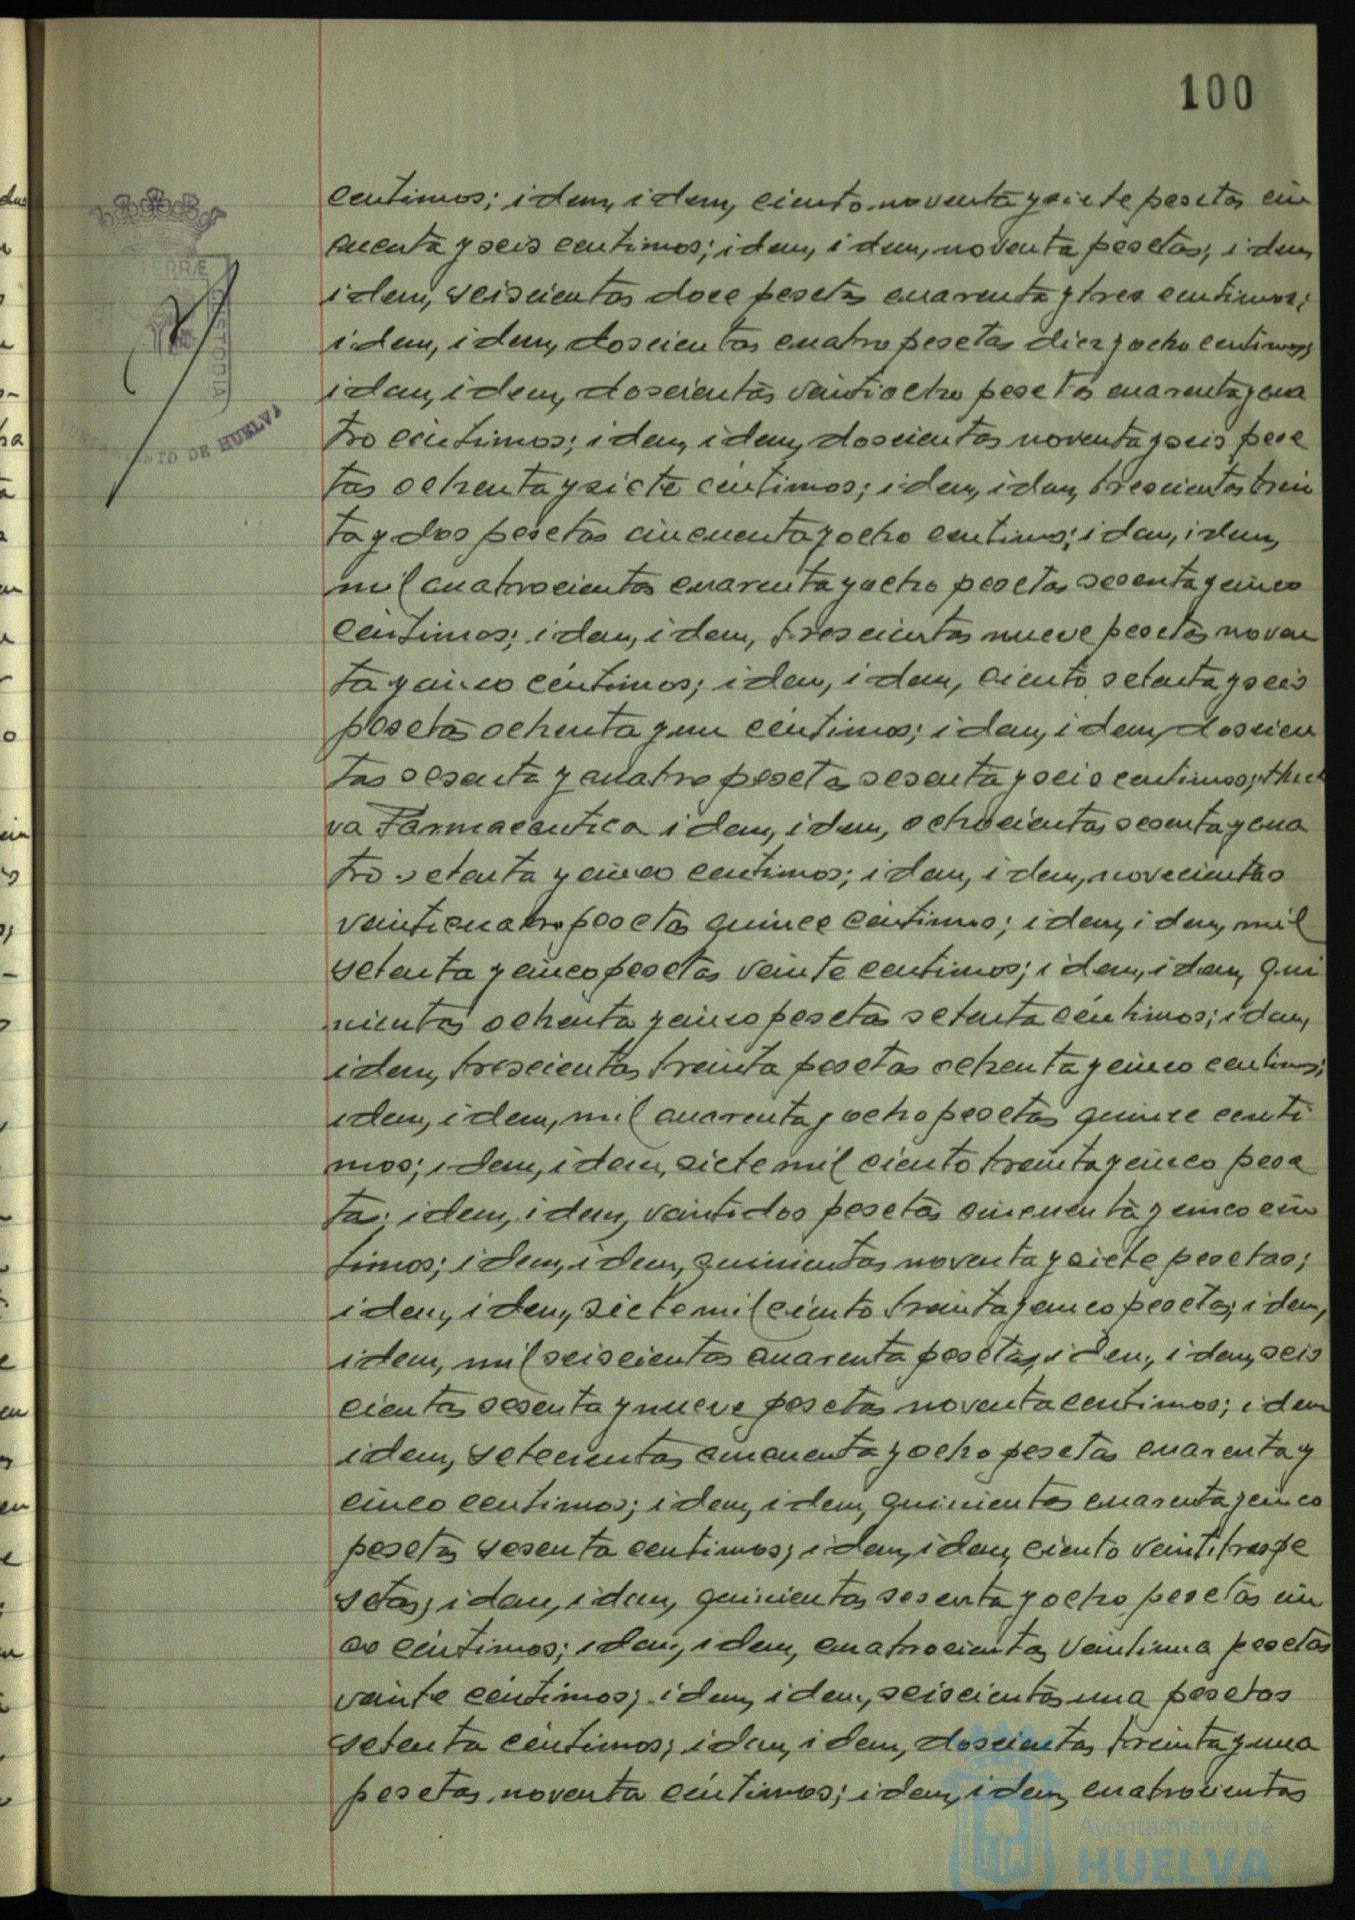 100
centimos; idem, idem, ciento noventa y siete pesetas cin
cuenta y seis centimos; idem, idem, noventa pesetas; idem,
idem, seiscientas doce pesetas cuarenta y tres centimos;
idem, idem, doscientas cuatro pesetas diez y ocho centimos;
idem, idem, doscientas veintiocho pesetas cuarenta y cua
tro céntimos; idem, idem, doscientas noventa y seis pese
tas ochenta y siete céntimos; idem, idem, trescientas trein
ta y dos pesetas cincuenta y ocho centimos; idem, idem,
mil cuatrocientas cuarenta y ocho pesetas sesenta y cinco
céntimos; idem, idem, trescientas nueve pesetas noven
ta y cinco céntimos; idem, idem, ciento setenta y seis
pesetas ochenta y un céntimos; idem, idem, doscien
tas sesenta y cuatro pesetas sesenta y seis centimos; Huel
va Farmaceutica idem, idem, ochocientas sesenta y cua
tro setenta y cinco centimos; idem, idem, novecientas
veinticuatro pesetas quince céntimos; idem, idem, mil
setenta y cinco pesetas veinte centimos; idem, idem, qui
nientas ochenta y cinco pesetas setenta céntimos; idem,
idem, trescientas treinta pesetas ochenta y cinco centimos;
idem, idem, mil cuarenta y ocho pesetas quince centi
mos; idem, idem, siete mil ciento treinta y cinco pese
tas; idem, idem, veintidos pesetas cincuenta y cinco cén
timos; idem, idem, quinientas noventa y siete pesetas;
idem, idem, siete mil ciento treinta y cinco pesetas; idem,
idem, mil seiscientas cuarenta pesetas, idem, idem, seis
cientas sesenta y nueve pesetas noventa centimos; idem
idem, setecientas cincuenta y ocho pesetas cuarenta y
cinco centimos; idem, idem, quinientas cuarenta y cinco
pesetas sesenta centimos; idem, idem, ciento veintitres pe
setas; idem, idem, quinientas sesenta y ocho pesetas cin
co céntimos; idem, idem, cuatrocientas veintiuna pesetas
veinte céntimos; idem, idem, seiscientas una pesetas
setenta céntimos; idem, idem, doscientas treinta y una
pesetas noventa céntimos; idem, idem, cuatrocientas
TERRÆ
CUSTODIA
AYUNTAMIENTO DE HUELVA
Ayuntamiento de
HUELVA